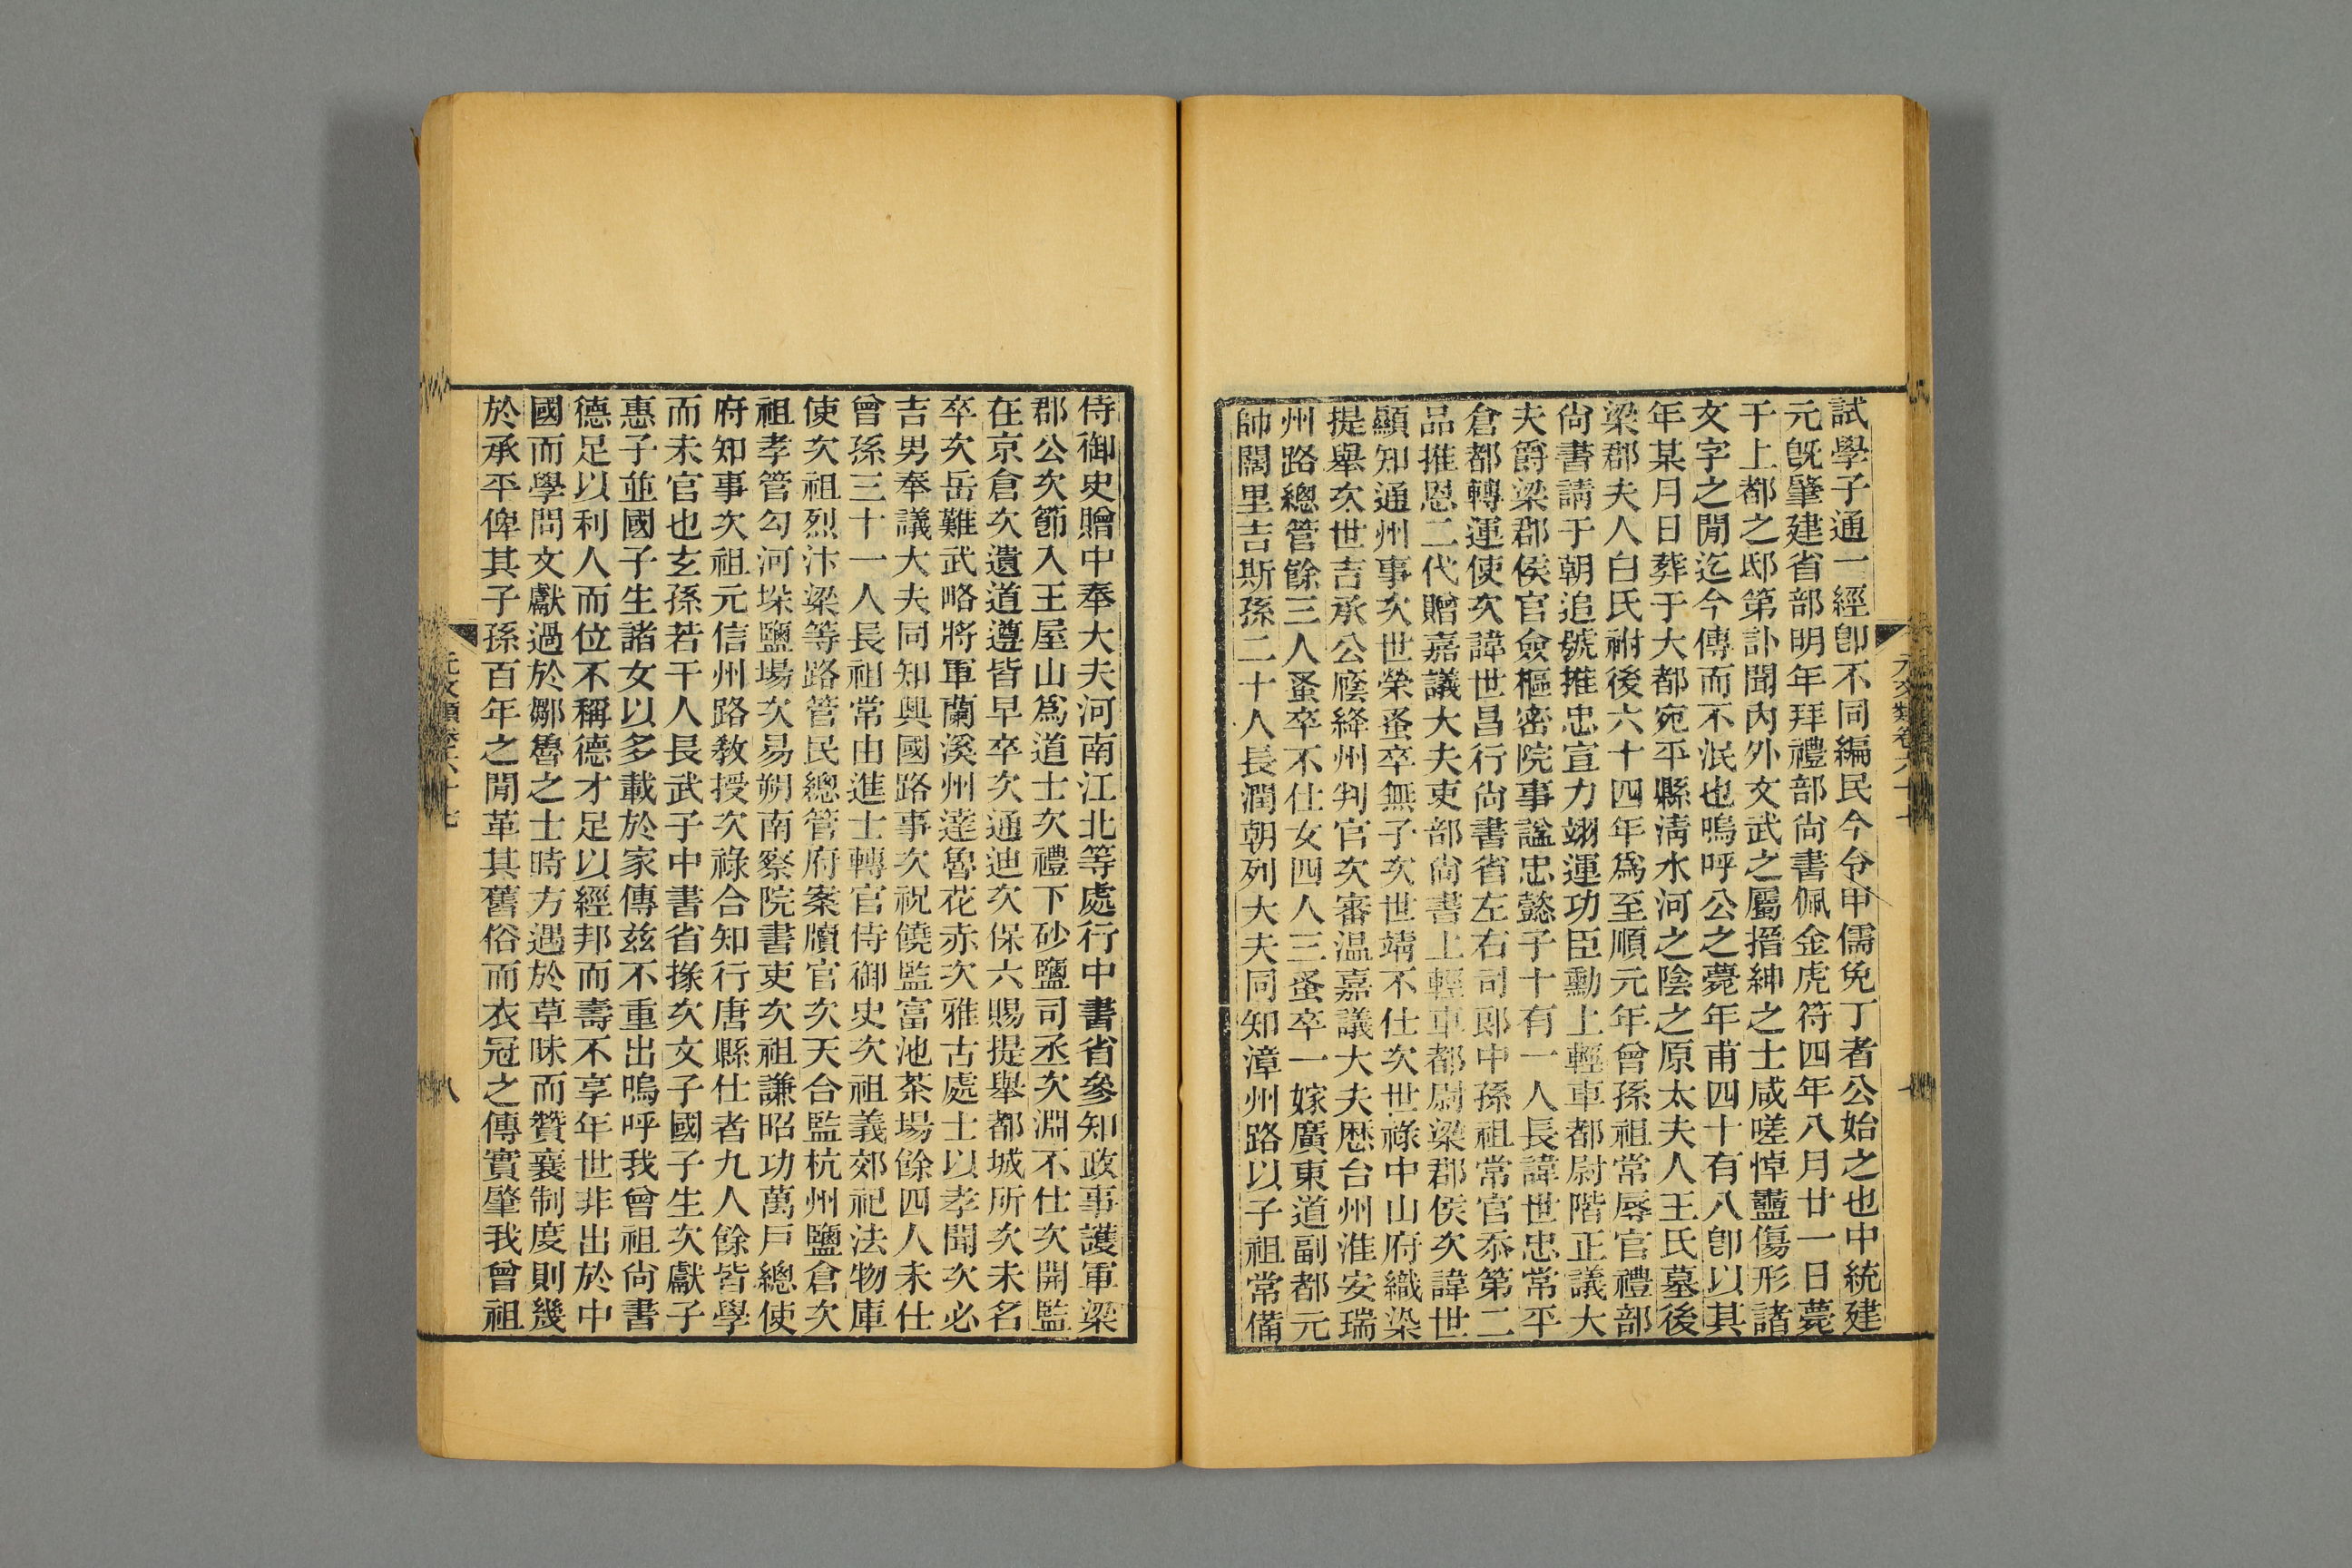 試學子通一經卽不同編民今令甲儒免丁者公始之也中統建
元旣肇建省部明年拜禮部尚書佩金虎符四年八月廿一日薨
于上都之邸第訃聞內外文武之屬搢紳之士咸嗟悼衋傷形諸
文字之閒迄今傳而不泯也嗚呼公之薨年甫四十有八卽以其
年某月日葬于大都宛平縣淸水河之陰之原太夫人王氏墓後
梁郡夫人白氏祔後六十四年爲至順元年曾孫祖常辱官禮部
尚書請于朝追號推忠宣力翊運功臣勳上輕車都尉階正議大
夫爵梁郡侯官僉樞密院事諡忠懿子十有一人長諱世忠常平
倉都轉運使次諱世昌行尚書省左右司郎中孫祖常官忝第二
品推恩二代贈嘉議大夫吏部尚書上輕車都尉梁郡侯次諱世
顯知通州事次世榮蚤卒無子次世靖不仕次世祿中山府織染
提舉次世吉承公廕絳州判官次審温嘉議大夫歷台州淮安瑞
州路總管餘三人蚤卒不仕女四人三蚤卒一嫁廣東道副都元
帥闊里吉斯孫二十人長潤朝列大夫同知漳州路以子祖常備
元文類卷六十七
侍御史贈中奉大夫河南江北等處行中書省參知政事護軍梁
郡公次節入王屋山爲道士次禮下砂鹽司丞次淵不仕次開監
在京倉次遺道遵皆早卒次通迪次保六賜提舉都城所次未名
卒次岳難武略將軍蘭溪州達魯花赤次雅古處士以孝聞次必
吉男奉議大夫同知興國路事次祝饒監富池茶場餘四人未仕
曾孫三十一人長祖常由進士轉官侍御史次祖義郊祀法物庫
使次祖烈汴梁等路管民總管府案牘官次天合監杭州鹽倉次
祖孝管勾河垛鹽場次易朔南察院書吏次祖謙昭功萬戶總使
府知事次祖元信州路敎授次祿合知行唐縣仕者九人餘皆學
而未官也玄孫若干人長武子中書省掾次文子國子生次獻子
惠子並國子生諸女以多載於家傳兹不重出嗚呼我曾祖尚書
德足以利人而位不稱德才足以經邦而壽不享年世非出於中
國而學問文獻過於鄒魯之士時方遇於草昧而贊襄制度則幾
於承平俾其子孫百年之閒革其舊俗而衣冠之傳實肇我曾祖
元文類卷六十七
八